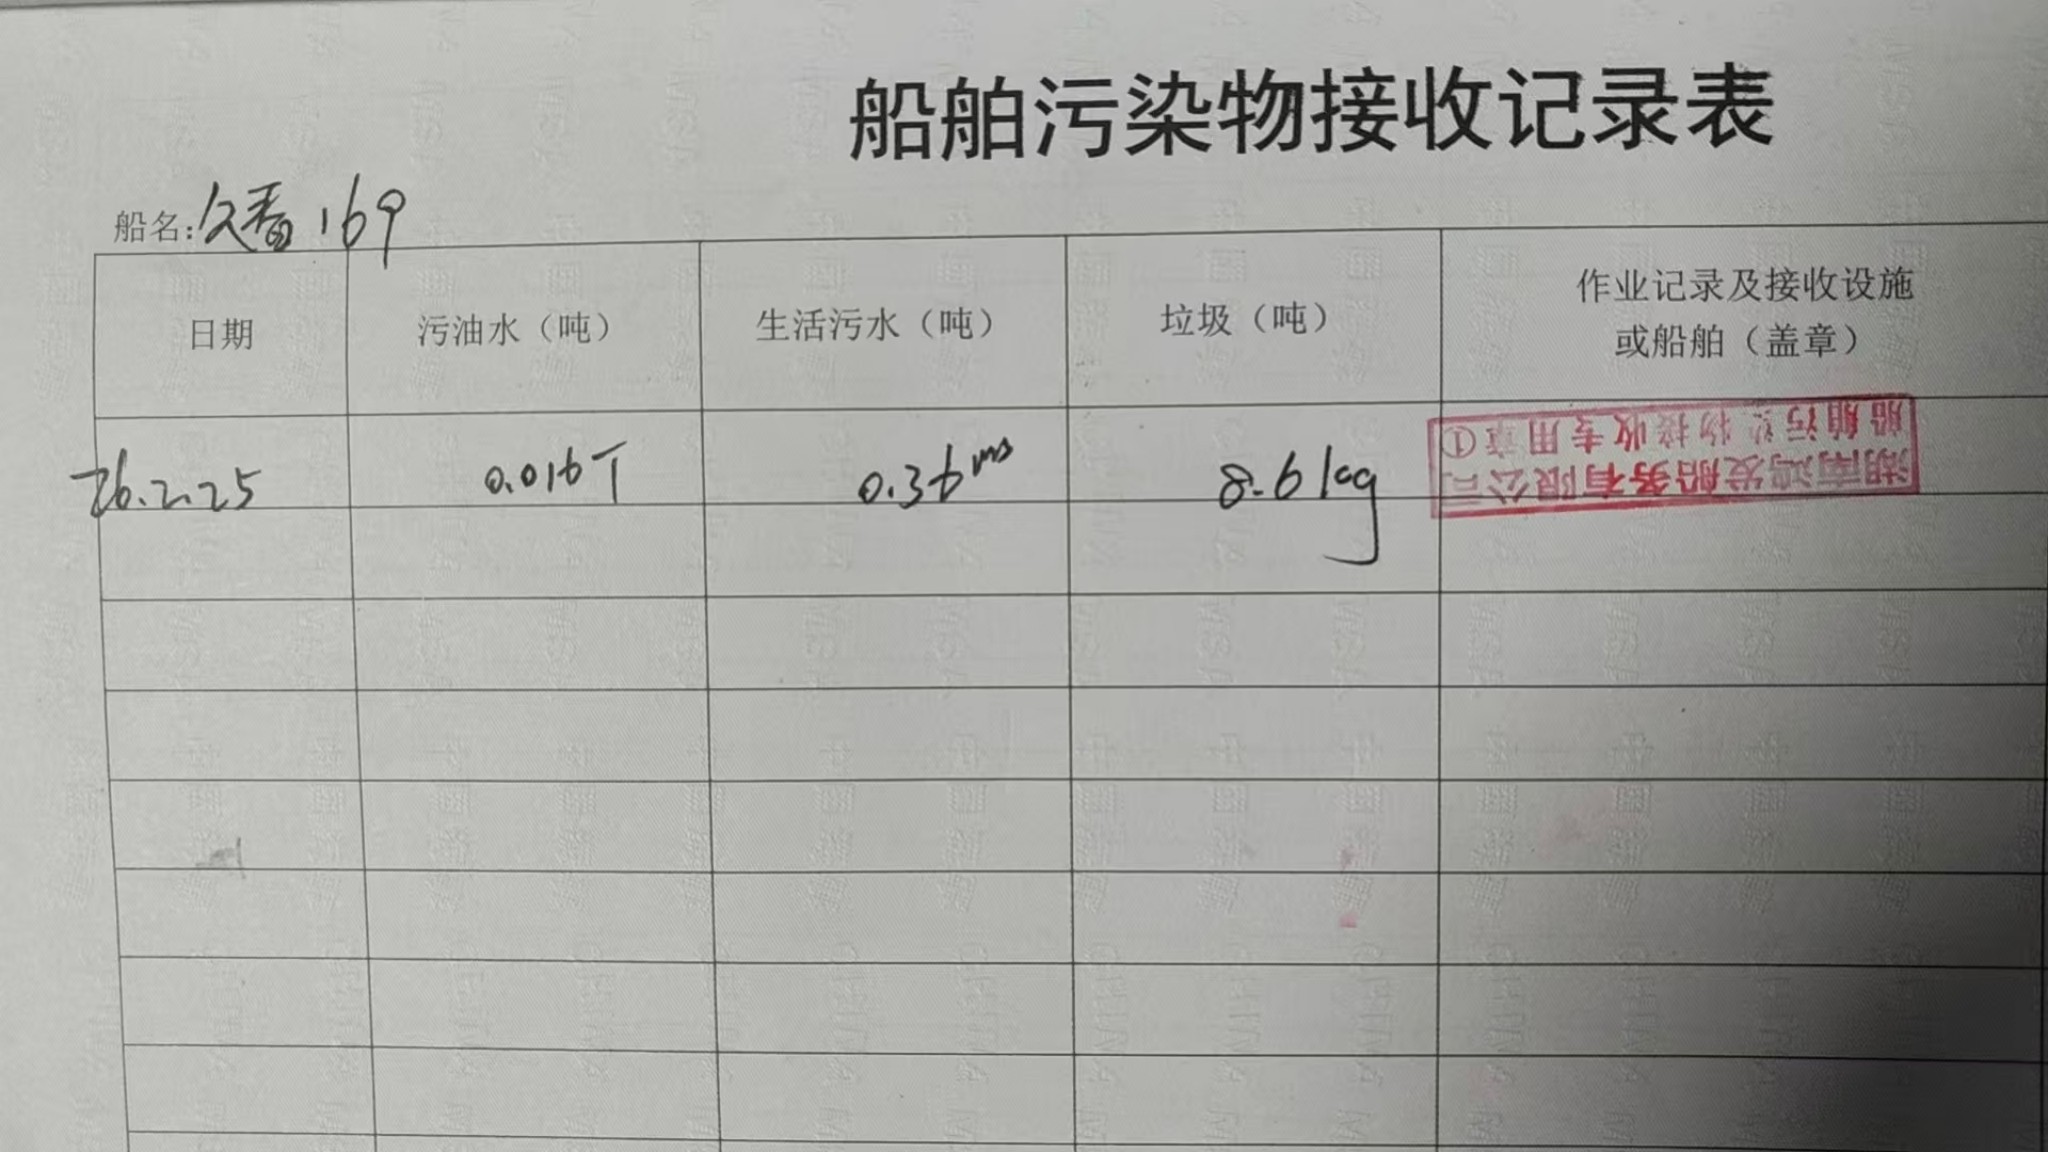 船舶污染物接收记录表
船名:久香169
日期 污油水（吨） 生活污水（吨） 垃圾（吨） 作业记录及接收设施
或船舶（盖章）
26.2.25 0.016T 0.36m³ 8.6kg
湖南鸿发船务有限公司
船舶污染物接收专用章①